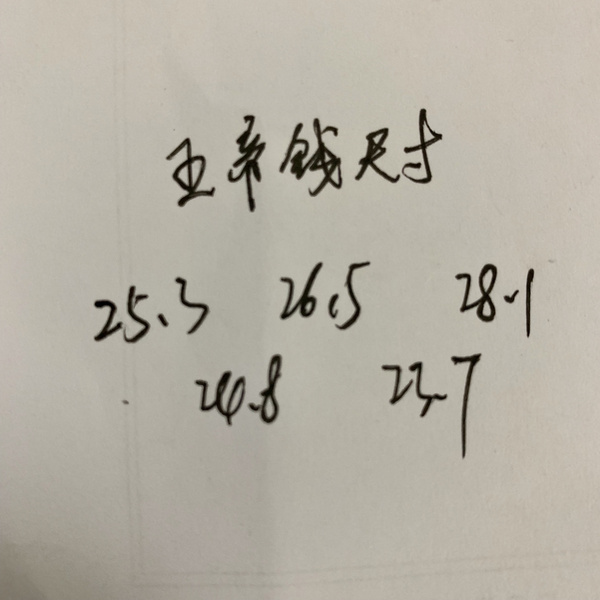 五帝钱尺寸
25.3 26.5 28.1
24.8 23.7